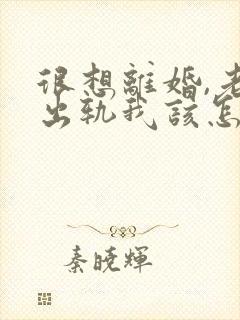 很想離婚,老
出軌我該怎
秦曉輝